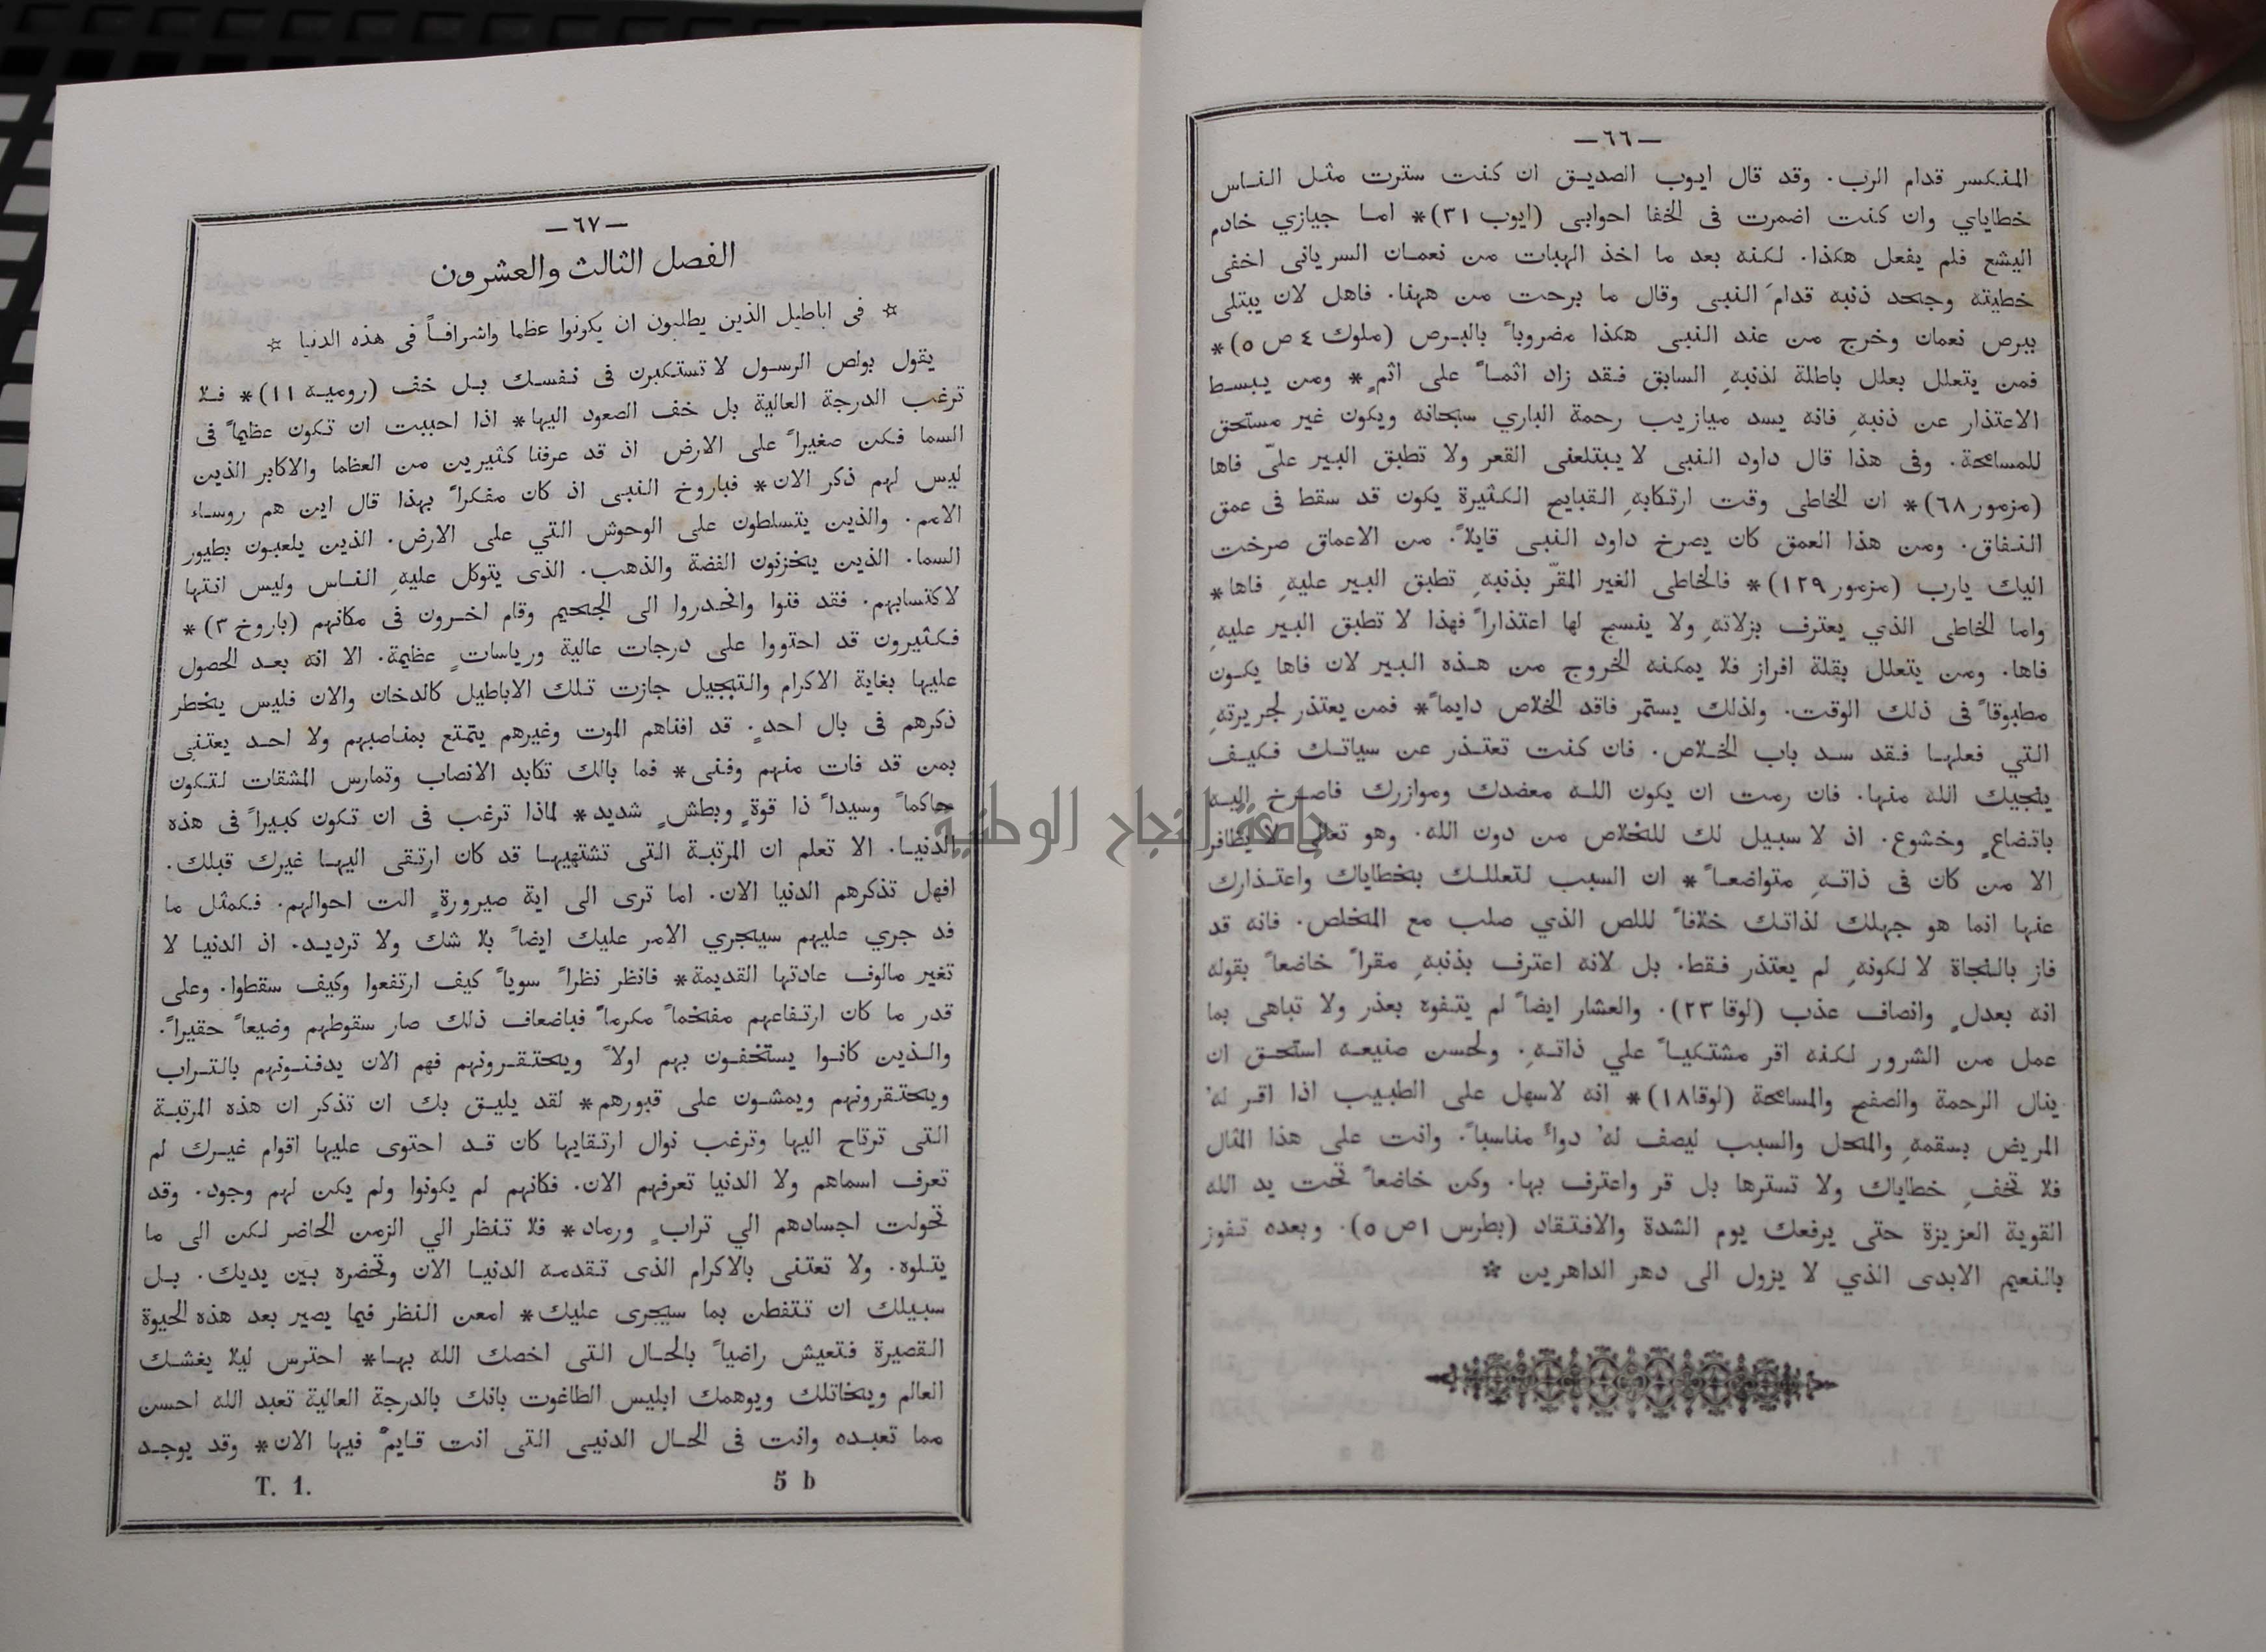 —٦٦—
المنكسر قدام الرب. وقد قال ايوب الصديق ان كنت سترت مثل الناس
خطاياي وان كنت اضمرت فى الخفا احوابى (ايوب ٣١)* اما جيازي خادم
اليشع فلم يفعل هكذا. لكنه بعد ما اخذ الهبات من نعمان السريانى اخفى
خطيته وجحد ذنبه قدامَ النبى وقال ما برحت من ههنا. فاهل لان يبتلى
ببرص نعمان وخرج من عند النبى هكذا مضروباً بالبرص (ملوك ٤ ص ٥)*
فمن يتعلل بعلل باطلة لذنبهِ السابق فقد زاد اثماً على اثمٍ* ومن يبسط
الاعتذار عن ذنبهِ فانه يسد ميازيب رحمة الباري سبحانه ويكون غير مستحق
للمسامحة. وفى هذا قال داود النبى لا يبتلعنى القعر ولا تطبق البير علىّ فاها
(مزمور ٦٨)* ان الخاطى وقت ارتكابهِ القبايح الكثيرة يكون قد سقط فى عمق
النفاق. ومن هذا العمق كان يصرخ داود النبى قايلاً. من الاعماق صرخت
اليك يارب (مزمور ١٢٩)* فالخاطى الغير المقرّ بذنبهِ تطبق البير عليهِ فاها*
واما الخاطى الذي يعترف بزلاتهِ ولا ينسج لها اعتذاراً فهذا لا تطبق البير عليهِ
فاها. ومن يتعلل بقلة افراز فلا يمكنه الخروج من هذه البير لان فاها يكون
مطبوقاً فى ذلك الوقت. ولذلك يستمر فاقد الخلاص دايماً* فمن يعتذر لجريرتهِ
التي فعلها فقد سد باب الخلاص. فان كنت تعتذر عن سياتك فكيف
ينجيك الله منها. فان رمت ان يكون الله معضدك وموازرك فاصرخ اليه
باتضاعٍ وخشوع. اذ لا سبيل لك للخلاص من دون الله. وهو تعالى لا يظافر
الا من كان فى ذاتهِ متواضعاً* ان السبب لتعللك بخطاياك واعتذارك
عنها انما هو جهلك لذاتك خلافاً لللص الذي صلب مع المخلص. فانه قد
فاز بالنجاة لا لكونهِ لم يعتذر فقط. بل لانه اعترف بذنبهِ مقراً خاضعاً بقوله
انه بعدلٍ وانصاف عذب (لوقا ٢٣). والعشار ايضاً لم يتفوه بعذر ولا تباهى بما
عمل من الشرور لكنه اقر مشتكياً علي ذاتهِ. ولحسن صنيعه استحق ان
ينال الرحمة والصفح والمسامحة (لوقا١٨)* انه لاسهل على الطبيب اذا اقر لهُ
المريض بسقمهِ والمحل والسبب ليصف لهُ دواً مناسباً. وانت على هذا المثال
فلا تخفِ خطاياك ولا تسترها بل قر واعترف بها. وكن خاضعاً تحت يد الله
القوية العزيزة حتى يرفعك يوم الشدة والافتقاد (بطرس ١ص ٥). وبعده تفوز
بالنعيم الابدى الذي لا يزول الى دهر الداهرين *
—٦٧—
الفصل الثالث والعشرون
* فى اباطيل الذين يطلبون ان يكونوا عظما واشرافاً فى هذه الدنيا *
يقول بولص الرسول لا تستكبرن فى نفسك بل خف (رومية ١١)* فلا
ترغب الدرجة العالية بل خف الصعود اليها* اذا احببت ان تكون عظيماً فى
السما فكن صغيراً على الارض اذ قد عرفنا كثيرين من العظما والاكابر الذين
ليس لهم ذكر الان* فباروخ النبى اذ كان مفكراً بهذا قال اين هم روساء
الامم. والذين يتسلطون على الوحوش التي على الارض. الذين يلعبون بطيور
السما. الذين يخزنون الفضة والذهب. الذى يتوكل عليهِ الناس وليس انتها
لاكتسابهم. فقد فنوا وانحدروا الى الجحيم وقام اخرون فى مكانهم (باروخ ٣)*
فكثيرون قد احتووا على درجات عالية ورياساتٍ عظيمة. الا انه بعد الحصول
عليها بغاية الاكرام والتبجيل جازت تلك الاباطيل كالدخان والان فليس يخطر
ذكرهم فى بال احدٍ. قد افناهم الموت وغيرهم يتمتع بمناصبهم ولا احد يعتنى
بمن قد فات منهم وفنى* فما بالك تكابد الانصاب وتمارس المشقات لتكون
حاكماً وسيداً ذا قوةٍ وبطشٍ شديد* لماذا ترغب فى ان تكون كبيراً فى هذه
الدنيا. الا تعلم ان المرتبة التى تشتهيها قد كان ارتقى اليها غيرك قبلك.
افهل تذكرهم الدنيا الان. اما ترى الى اية صيرورةٍ الت احوالهم. فكمثل ما
قد جري عليهم سيجري الامر عليك ايضاً بلا شك ولا ترديد. اذ الدنيا لا
تغير مالوف عادتها القديمة* فانظر نظراً سوياً كيف ارتفعوا وكيف سقطوا. وعلى
قدر ما كان ارتفاعهم مفخماً مكرماً فباضعاف ذلك صار سقوطهم وضيعاً حقيراً.
والذين كانوا يستخفون بهم اولاً ويحتقرونهم فهم الان يدفنونهم بالتراب
ويحتقرونهم ويمشون على قبورهم* لقد يليق بك ان تذكر ان هذه المرتبة
التى ترتاح اليها وترغب نوال ارتقايها كان قد احتوى عليها اقوام غيرك لم
تعرف اسماهم ولا الدنيا تعرفهم الان. فكانهم لم يكونوا ولم يكن لهم وجود. وقد
تحولت اجسادهم الي ترابٍ ورماد* فلا تنظر الي الزمن الحاضر لكن الى ما
يتلوه. ولا تعتنى بالاكرام الذى تقدمه الدنيا الان وتحضره بين يديك. بل
سبيلك ان تتفطن بما سيجرى عليك* امعن النظر فيما يصير بعد هذه الحيوة
القصيرة فتعيش راضياً بالحال التى اخصك الله بها* احترس ليلا يغشك
العالم ويخاتلك ويوهمك ابليس الطاغوت بانك بالدرجة العالية تعبد الله احسن
مما تعبده وانت فى الحال الدنيى التى انت قايمٌ فيها الان* وقد يوجد
T. 1. 5 b
جامعة النجاح الوطنية